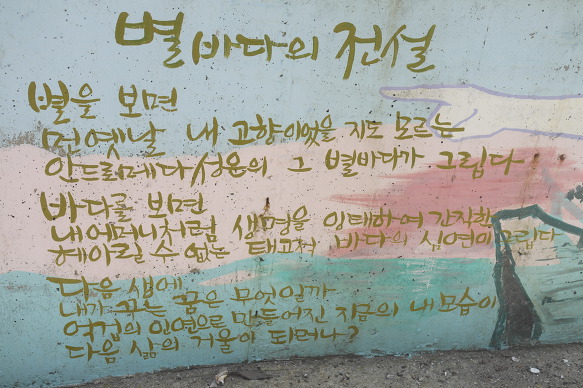 별바다의 전설
별을 보면
먼 옛날 내 고향이었을 지도 모르는
안드로메다 성운의 그 별바다가 그립다
바다를 보면
내 어머니처럼 생명을 잉태하여 간직한
헤아릴 수 없는 태고적 바다의 심연이 그립다
다음 생에
내가 꾸는 꿈은 무엇일까
억겁의 인연으로 만들어진 지금의 내 모습이
다음 삶의 거울이 되려나?